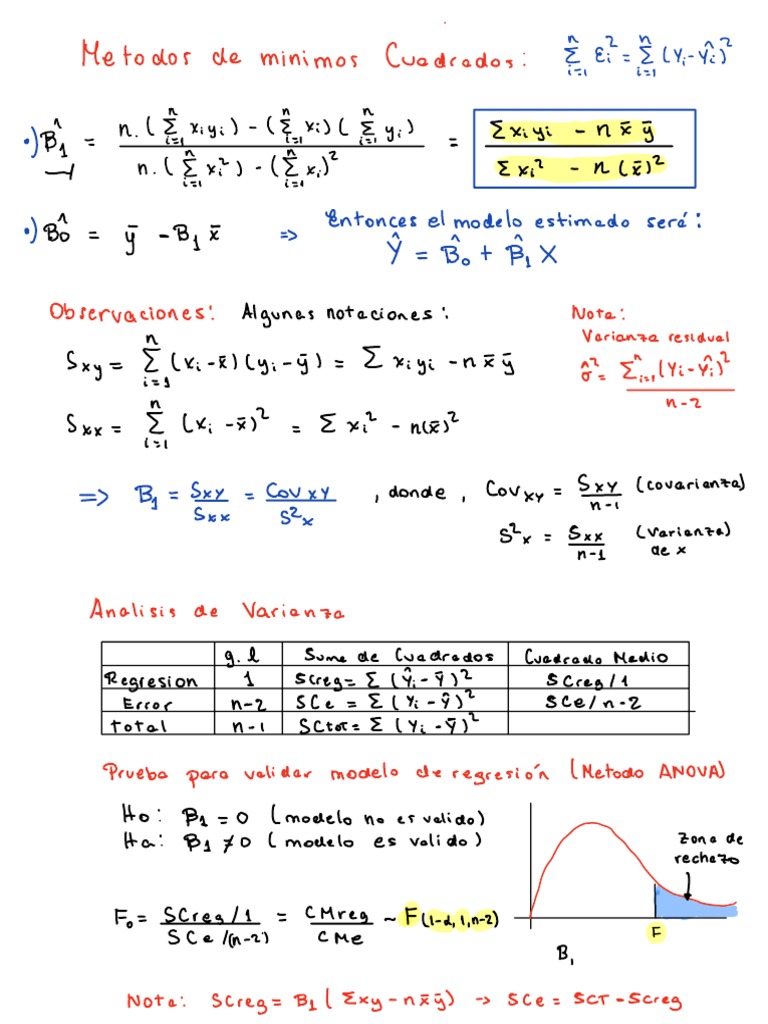 Metodos de minimos Cuadrados: Σⁿᵢ₌₁ εᵢ² = Σⁿᵢ₌₁ (Yᵢ - Ŷᵢ)²
•) B̂₁ = n.(Σⁿᵢ₌₁ xᵢyᵢ) - (Σⁿᵢ₌₁ xᵢ)(Σⁿᵢ₌₁ yᵢ) / n.(Σⁿᵢ₌₁ xᵢ²) - (Σⁿᵢ₌₁ xᵢ)² = Σxᵢyᵢ - n x̄ ȳ / Σxᵢ² - n(x̄)²
•) B̂₀ = ȳ - B₁ x̄ => Entonces el modelo estimado será:
Ŷ = B̂₀ + B̂₁ X
Observaciones: Algunas notaciones:
Sxy = Σⁿᵢ₌₁ (xᵢ - x̄)(yᵢ - ȳ) = Σ xᵢyᵢ - n x̄ ȳ
Sxx = Σⁿᵢ₌₁ (xᵢ - x̄)² = Σ xᵢ² - n(x̄)²
Nota:
Varianza residual
σ̂² = Σⁿᵢ₌₁ (Yᵢ - Ŷᵢ)² / n-2
=> B₁ = Sxy / Sxx = Cov xy / S²x , donde , Cov xy = Sxy / n-1 (covarianza)
S²x = Sxx / n-1 (varianza) de x
Analisis de Varianza
g.l Suma de Cuadrados Cuadrado Medio
Regresion 1 SCreg = Σ (Ŷᵢ - Ȳ)² SCreg/1
Error n-2 SCe = Σ (Yᵢ - Ŷ)² SCe/n-2
total n-1 SCtot = Σ (Yᵢ - Ȳ)²
Prueba para validar modelo de regresión (Metodo ANOVA)
Ho: B₁ = 0 (modelo no es valido)
Ha: B₁ ≠ 0 (modelo es valido)
zona de
rechazo
F₀ = SCreg/1 / SCe/(n-2) = CMreg / CMe ~ F(1-α, 1, n-2)
F
B₁
Nota: SCreg = B₁(Σxy - n x̄ ȳ) → SCe = SCT - SCreg